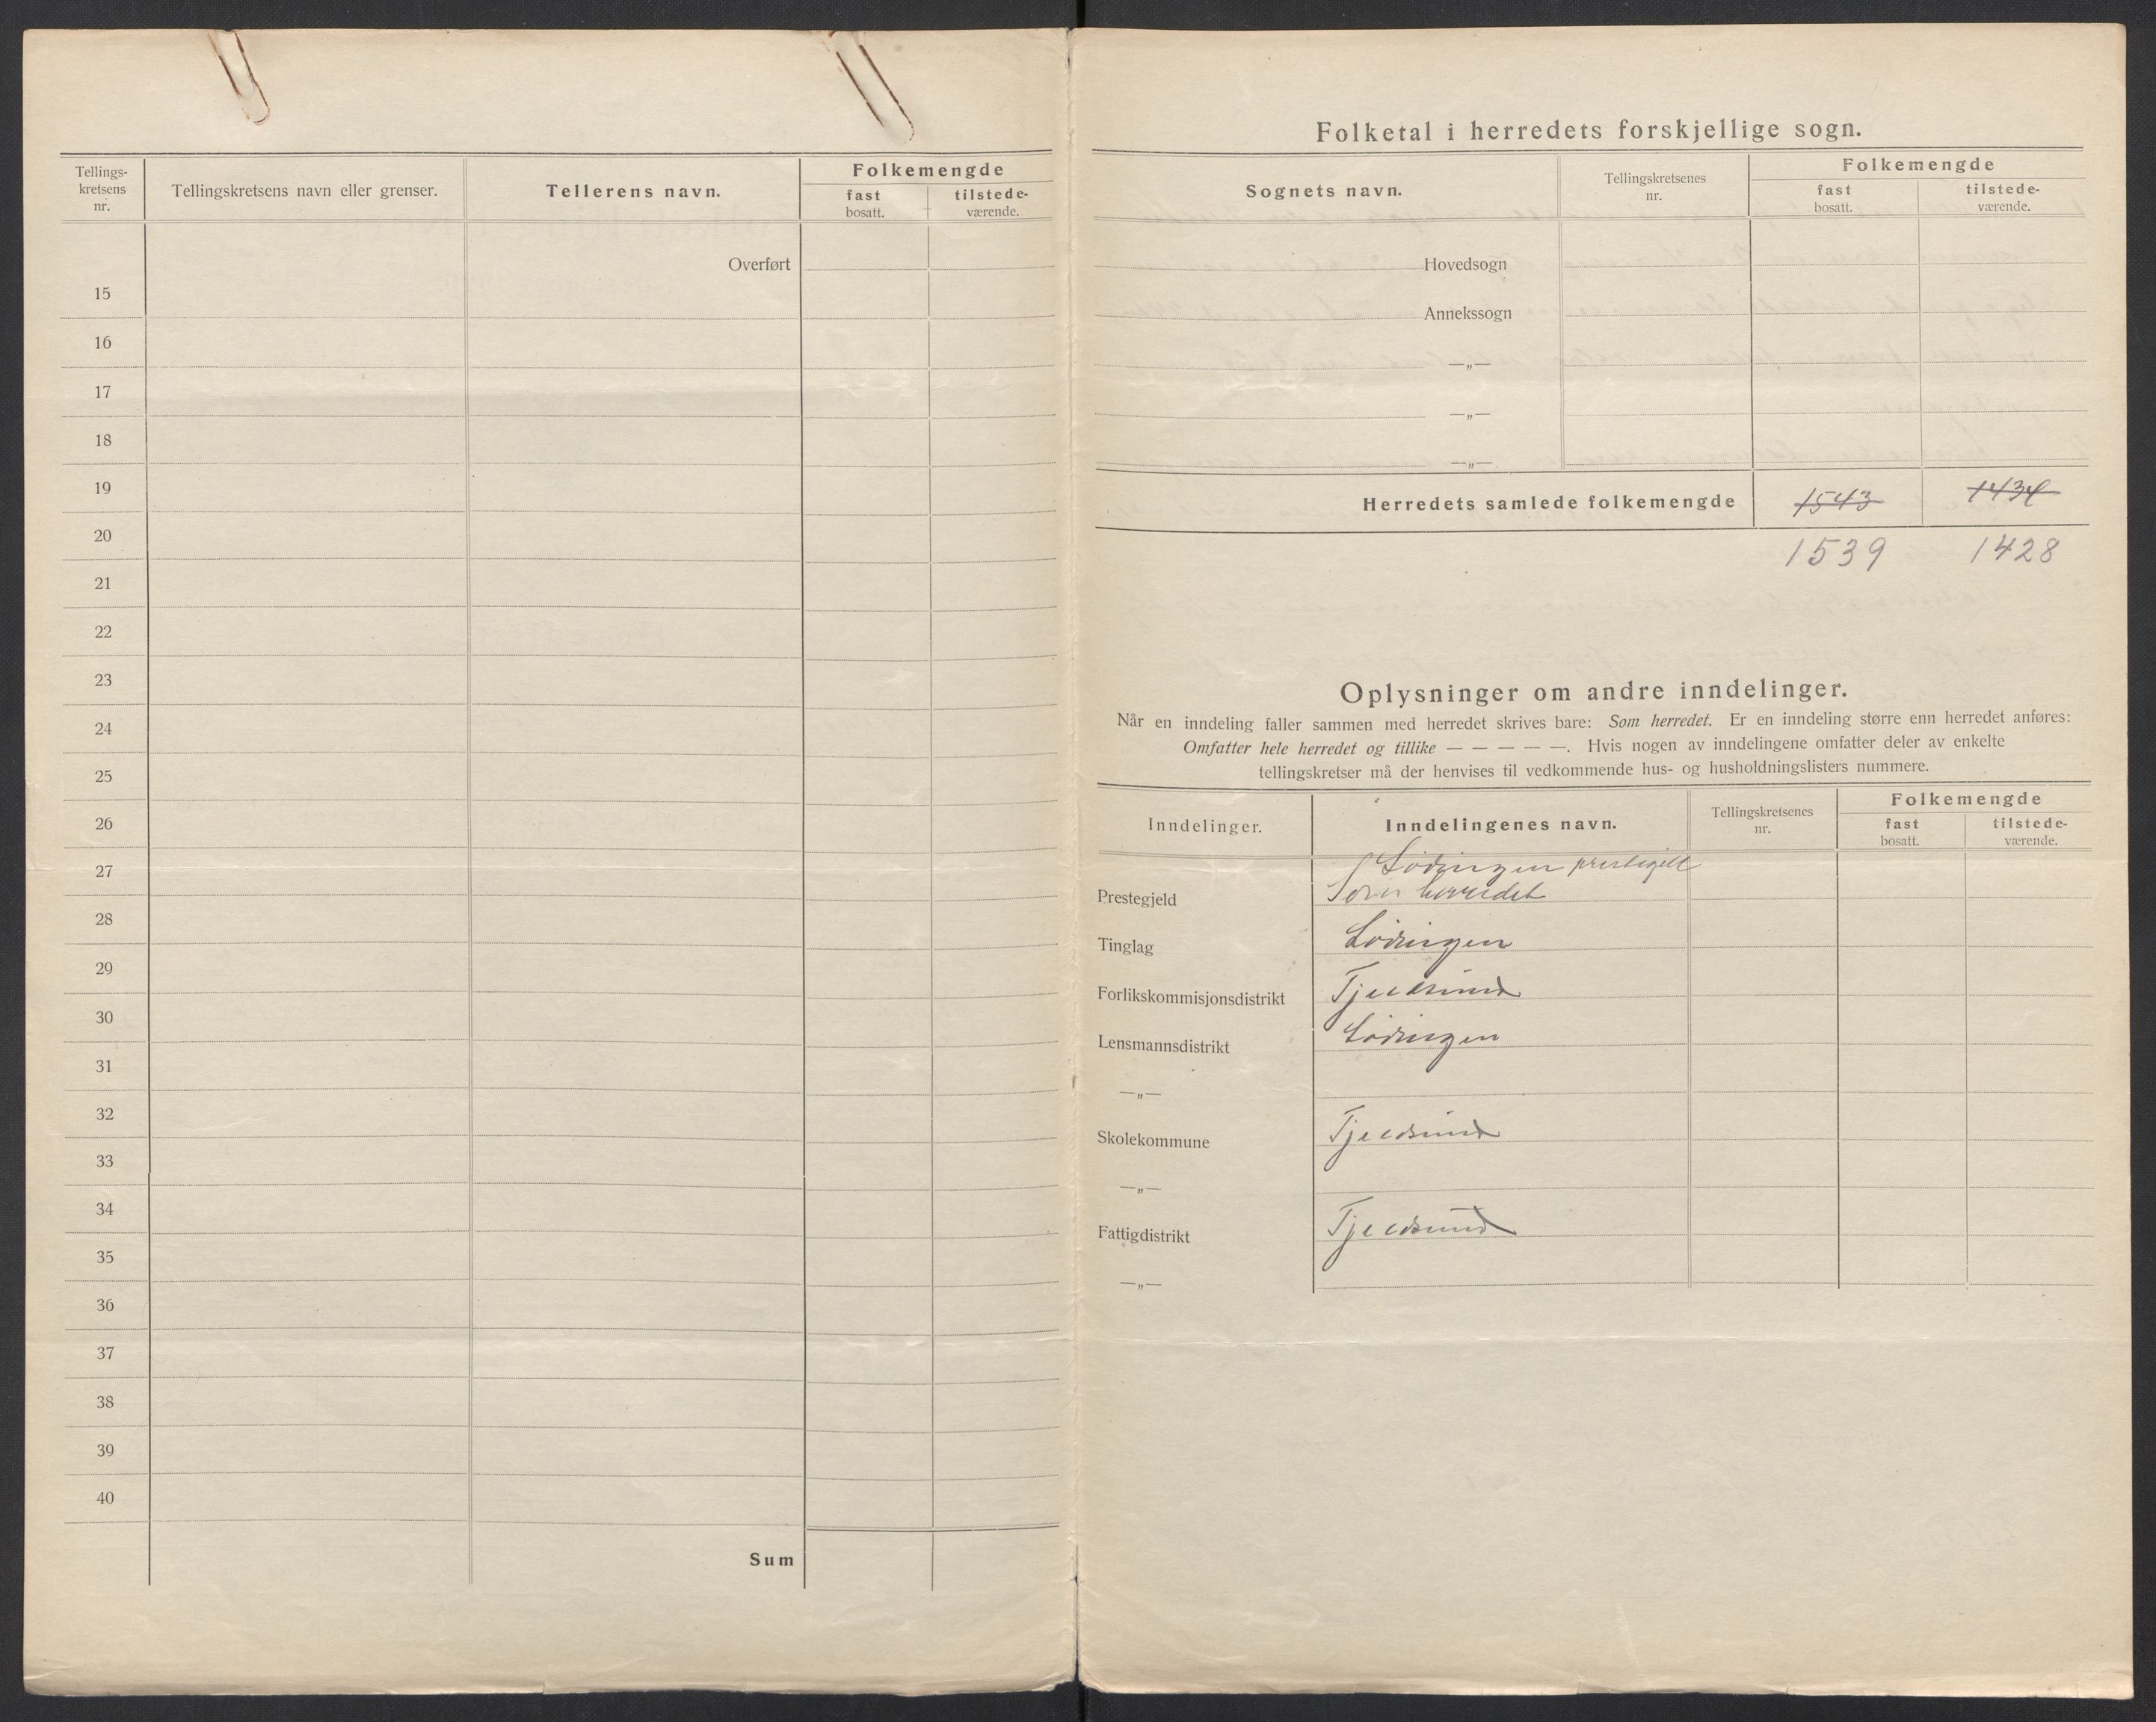 Tellings-
kretsens
nr.
Tellingskretsens navn eller grenser.
Tellerens navn.
Folkemengde
fast
bosatt.
tilstede-
værende.
Overført
15
16
17
18
19
20
21
22
23
24
25
26
27
28
29
30
31
32
33
34
35
36
37
38
39
40
Sum
Folketal i herredets forskjellige sogn.
Sognets navn.
Tellingskretsenes
nr.
Folkemengde
fast
bosatt.
tilstede-
værende.
Hovedsogn
Annekssogn
—„—
—„—
—„—
Herredets samlede folkemengde 1543 1434
1539 1428
Oplysninger om andre inndelinger.
Når en inndeling faller sammen med herredet skrives bare: Som herredet. Er en inndeling større enn herredet anføres:
Omfatter hele herredet og tillike — — — — —. Hvis nogen av inndelingene omfatter deler av enkelte
tellingskretser må der henvises til vedkommende hus- og husholdningslisters nummere.
Inndelinger.
Inndelingenes navn.
Tellingskretsenes
nr.
Folkemengde
fast
bosatt.
tilstede-
værende.
Lødingen prestegjell
Prestegjeld Som herredet
Tinglag Lødingen
Forlikskommisjonsdistrikt Tjeldsund
Lensmannsdistrikt Lødingen
—„—
Skolekommune Tjeldsund
—„—
Fattigdistrikt Tjeldsund
—„—